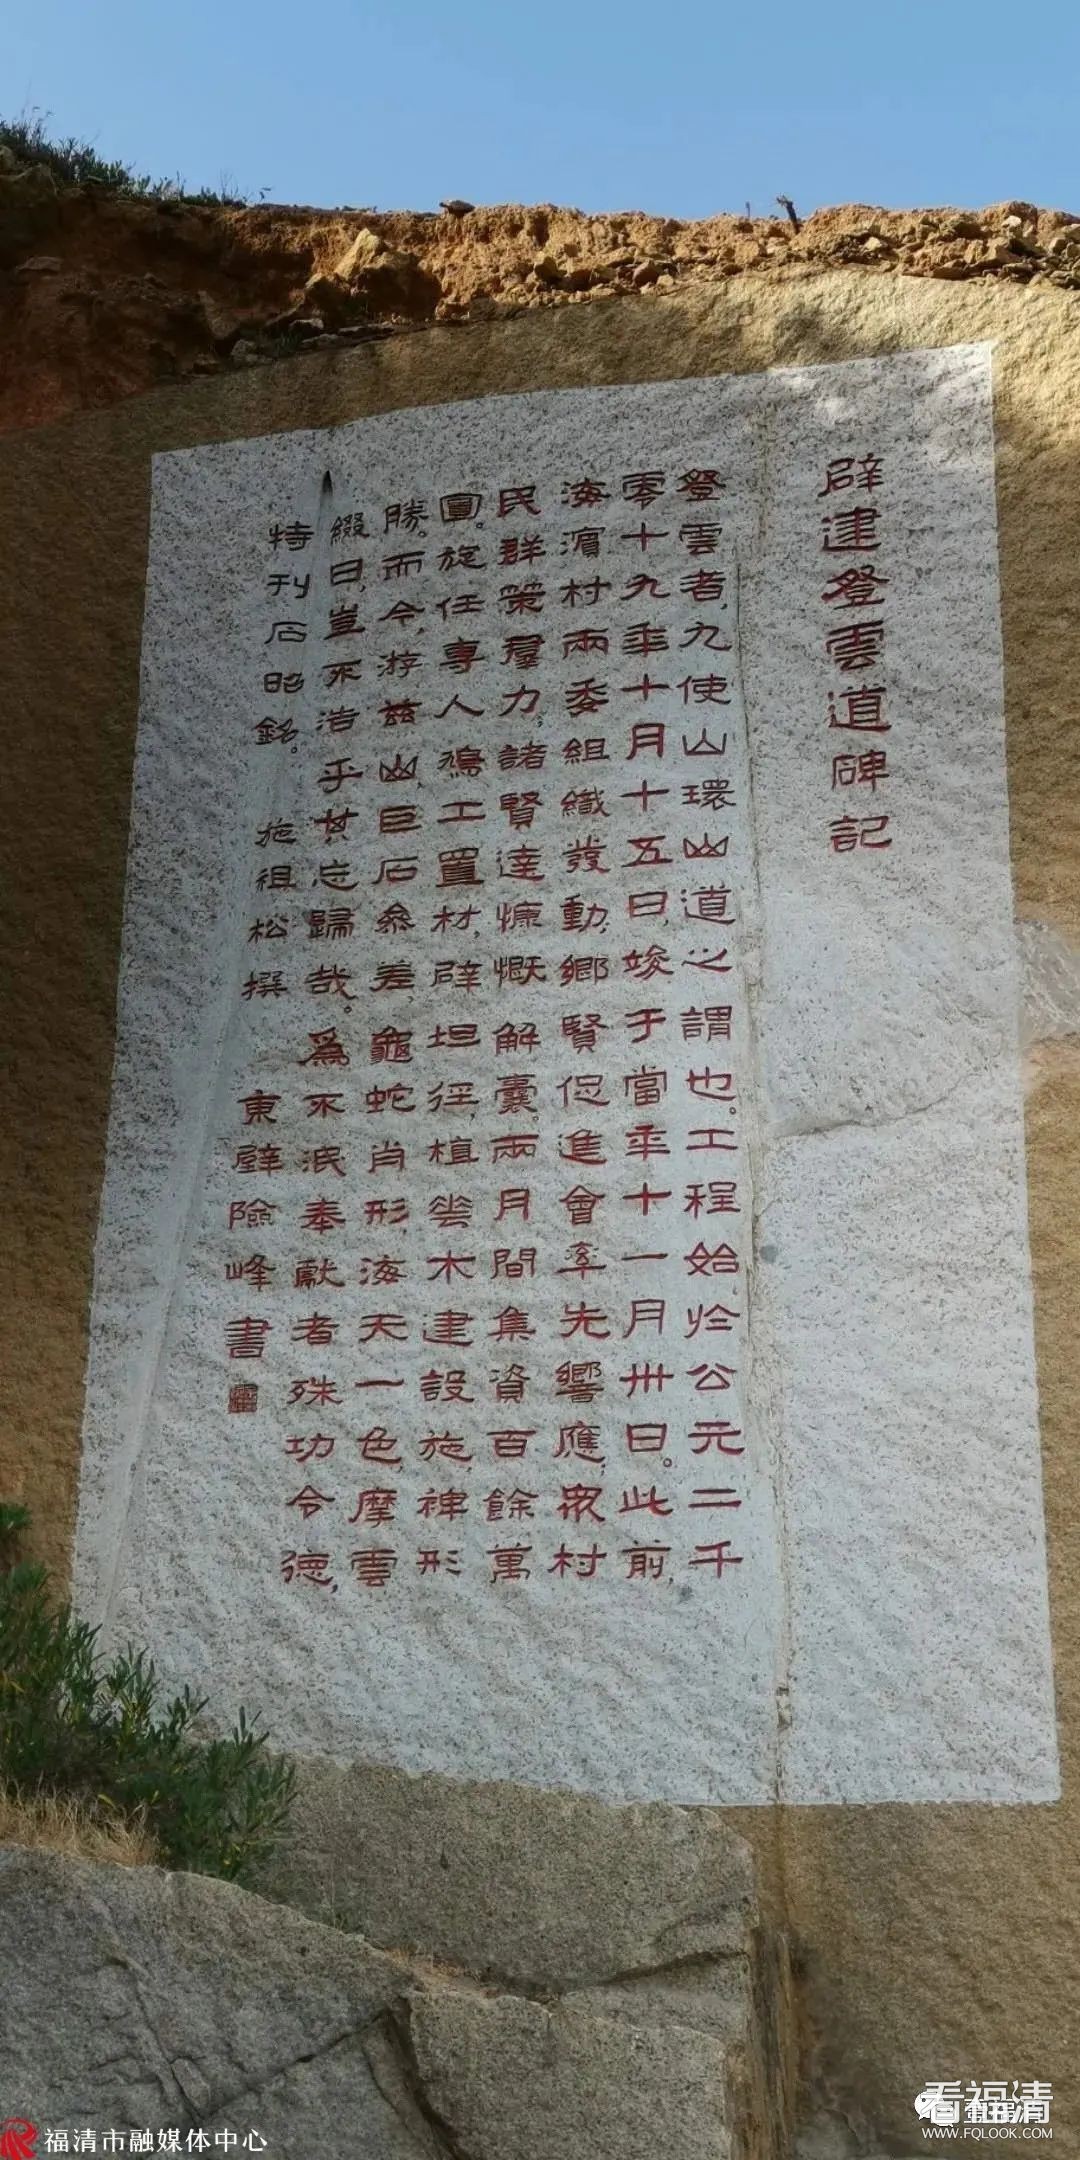 辟建登雲道碑記
登雲者,九使山環山道之謂也。工程始於公元二千
零十九年十月十五日,竣于當年十一月卅日。此前,
海濱村兩委組織發動,鄉賢促進會率先響應,眾村
民群策羣力,諸賢達慷慨解囊。兩月間集資百餘萬
圓。旋任專人鳩工置材,辟坦徑,植花木,建設施,裨形
勝。而今,游兹山,巨石參差,龜蛇肖形,海天一色,摩雲
綴日,豈不浩乎其忘歸哉。爲不泯奉獻者殊功令德,
特刊石昭銘。 施祖松撰 東壁險峰書
福清市融媒体中心
看福清
WWW.FQLOOK.COM